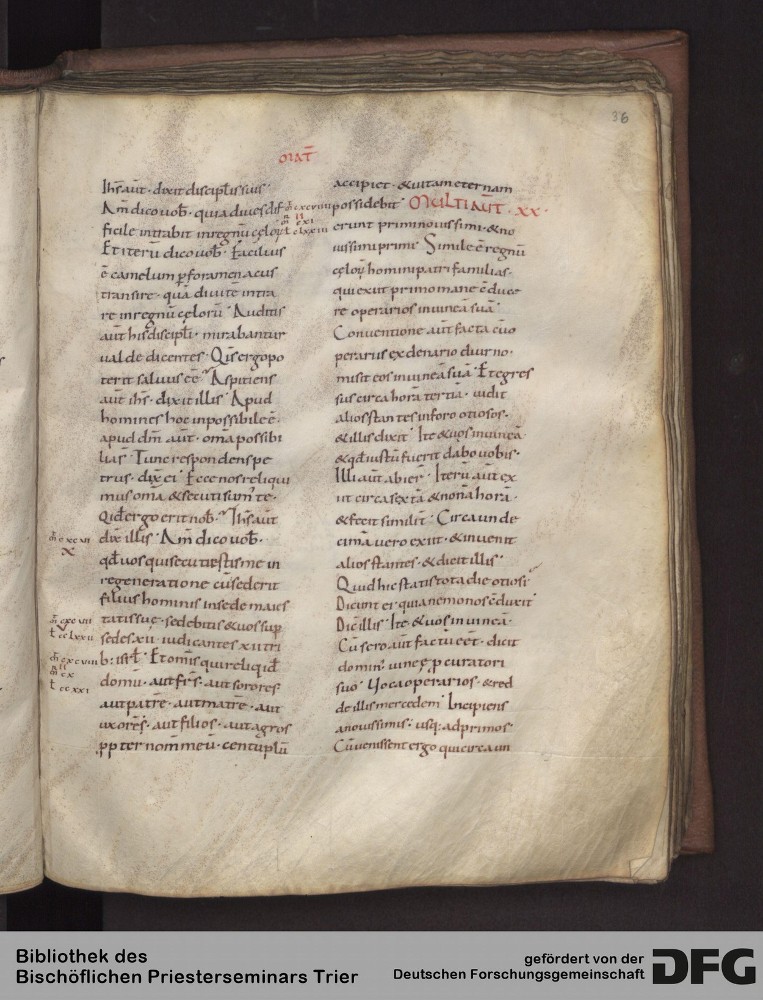 36
MAT̄
Ihs aūt · dixit discipl̄is suis ·
Am̄ dico uob̄ · quia diues dif
ficile intrabit inregnū cęloꝝ
Et iterū dico uob̄ · Facilius
ē camelum ꝑforamen acus
transire · quā diuitē intra
re inregnū cęlorū · Auditis
aūt his discipl̄i · mirabantur
ualde dicentes · Qīs ergo po
terit saluus eē · Aspiciens
aūt ihs̄ · dixit illis · Apud
homines hoc inpossibile ē ·
apud dm̄ aūt · om̄a possibi
lia s̄ · Tunc respondens pe
trus · dix̄ ei · Ecce nos reliqui
mus om̄a & secuti sum' te ·
Qid̄ ergo erit nob̄ · Ihs aūt
dix̄ illis · Am̄ dico uob̄ ·
qd̄ uos qui secuti estis me in
regeneratione cū sederit
filius hominis insede maies
tatis suę · sedebitis & uos sup̄
sedes · xii · iudicantes xii tri
b: isrl̄ · Et om̄is qui reliqid̄
domū · aut fr̄s · aut sorores
aut patrē · aut matrē · aut
uxorē · aut filios · aut agros
ꝓpter nom̄ meū · centuplū
accipiet · & uitam eternam
possidebit · MULTI AŪT · XX ·
erunt primi nouissimi · & no
uissimi primi · Simile ē regnū
cęloꝝ homini patri familias ·
qui exiit primo mane cōduce
re operarios inuineā suā ·
Conuentione aūt facta cū o
perariis ex denario diurno ·
misit eos inuineā suā · Et egres
sus circa horā tertiā · uidit
alios stantes inforo otiosos ·
& illis dixit · Ite & uos inuineā ·
& qd̄ iustū fuerit dabo uobis ·
Illi aūt abier̄ · Iterū aūt ex
iit circa sextā & nonā horā ·
& fecit similit̄ · Circa unde
cimā uero exiit · & inuenit
alios stantes · & dicit illis ·
Quid hic statis tota die otiosi
Dicunt ei quia nemo nos cōduxit
Dic̄ illis · Ite & uos inuineā ·
Cū sero aūt factū eēt · dicit
domin' uineę ꝓcuratori
suo · Uoca operarios · & red
de illis mercedem · Incipiens
a nouissimis · usq: ad primos
Cū uenissent ergo qui circa un
Bibliothek des
Bischöflichen Priesterseminars Trier
gefördert von der
Deutschen Forschungsgemeinschaft
DFG